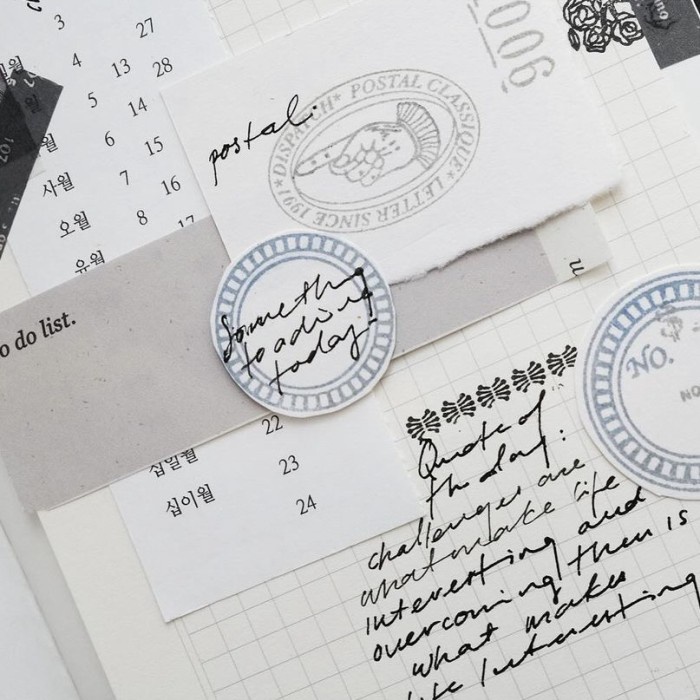 3 27
4 13 28
5 14
6 15
사월 7 16
오월 8 17
유월
22
십일월 23
십이월 24
1006
postali
DISPATCH * POSTAL CLASSIQUE * LETTER SINCE 1991 *
o do list.
Something
to admire
today!
No.
NO
Quote of
the day:
challenges are
what make life
interesting and
overcoming them is
what makes
life interesting